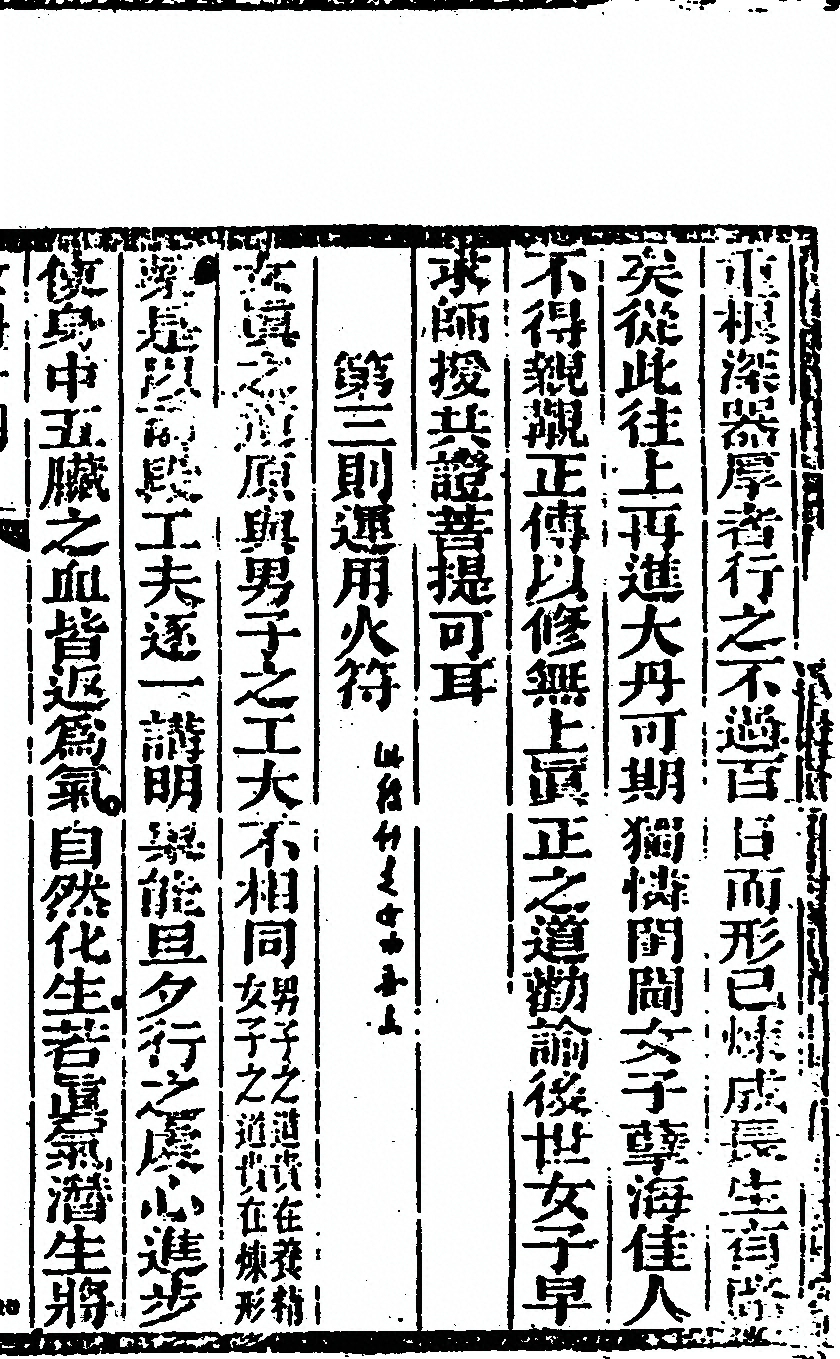 重根深器厚者行之不過百日而形已煉成長生有
矣從此往上再進大丹可期獨憐閨閫女子孽海佳人
不得親觀正傳以修無上眞正之道勸諭後世女子早
求師授共證菩提可耳
第三則運用火符
女眞之原與男子之工大不相同男子之道貴在養精女子之道貴在煉形
是以兩段工夫逐一講明果能旦夕行之虔心進步
使身中五臟之血皆返爲氣自然化生若眞氣潛生將